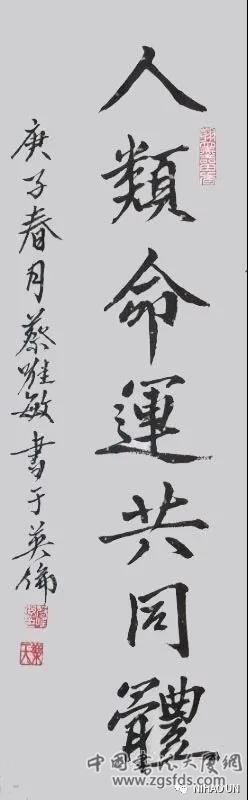 人類命運共同體
庚子春月蔡敏書于英倫
中國書法大廈網
www.zgsfds.com
NIHAO UN